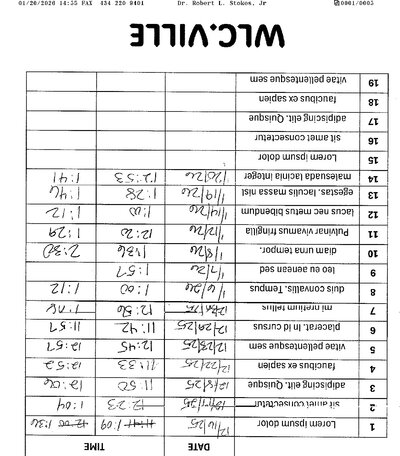 01/20/2020 14:55 FAX 434 220 8401 Dr. Robert L. Stokes, Jr 0001/0003
DATE TIME
1 Lorem ipsum dolor 1:09 1:36
2 sit amet consectetur 12:23 1:04
3 adipiscing elit. Quisque 12/18/25 11:50
4 faucibus ex sapien 12/22/25 11:33 12:52
5 vitae pellentesque sem 12/23/25 12:45 12:57
6 placerat. In id cursus 12/29/25 11:42 11:57
7 mi pretium tellus 12:56
8 duis convallis. Tempus 1/6/26 1:00 1:12
9 leo eu aenean sed 1/7/26 1:57
10 diam urna tempor. 1/8/26 1:36 2:30
11 Pulvinar vivamus fringilla 1/12/26 12:20 1:29
12 lacus nec metus bibendum 1/14/26 1:00 1:12
13 egestas. Iaculis massa nisl 1/19/26 1:28 1:46
14 malesuada lacinia integer 1/20/26 12:53 1:41
15 Lorem ipsum dolor
16 sit amet consectetur
17 adipiscing elit. Quisque
18 faucibus ex sapien
19 vitae pellentesque sem
WLC.VILLE